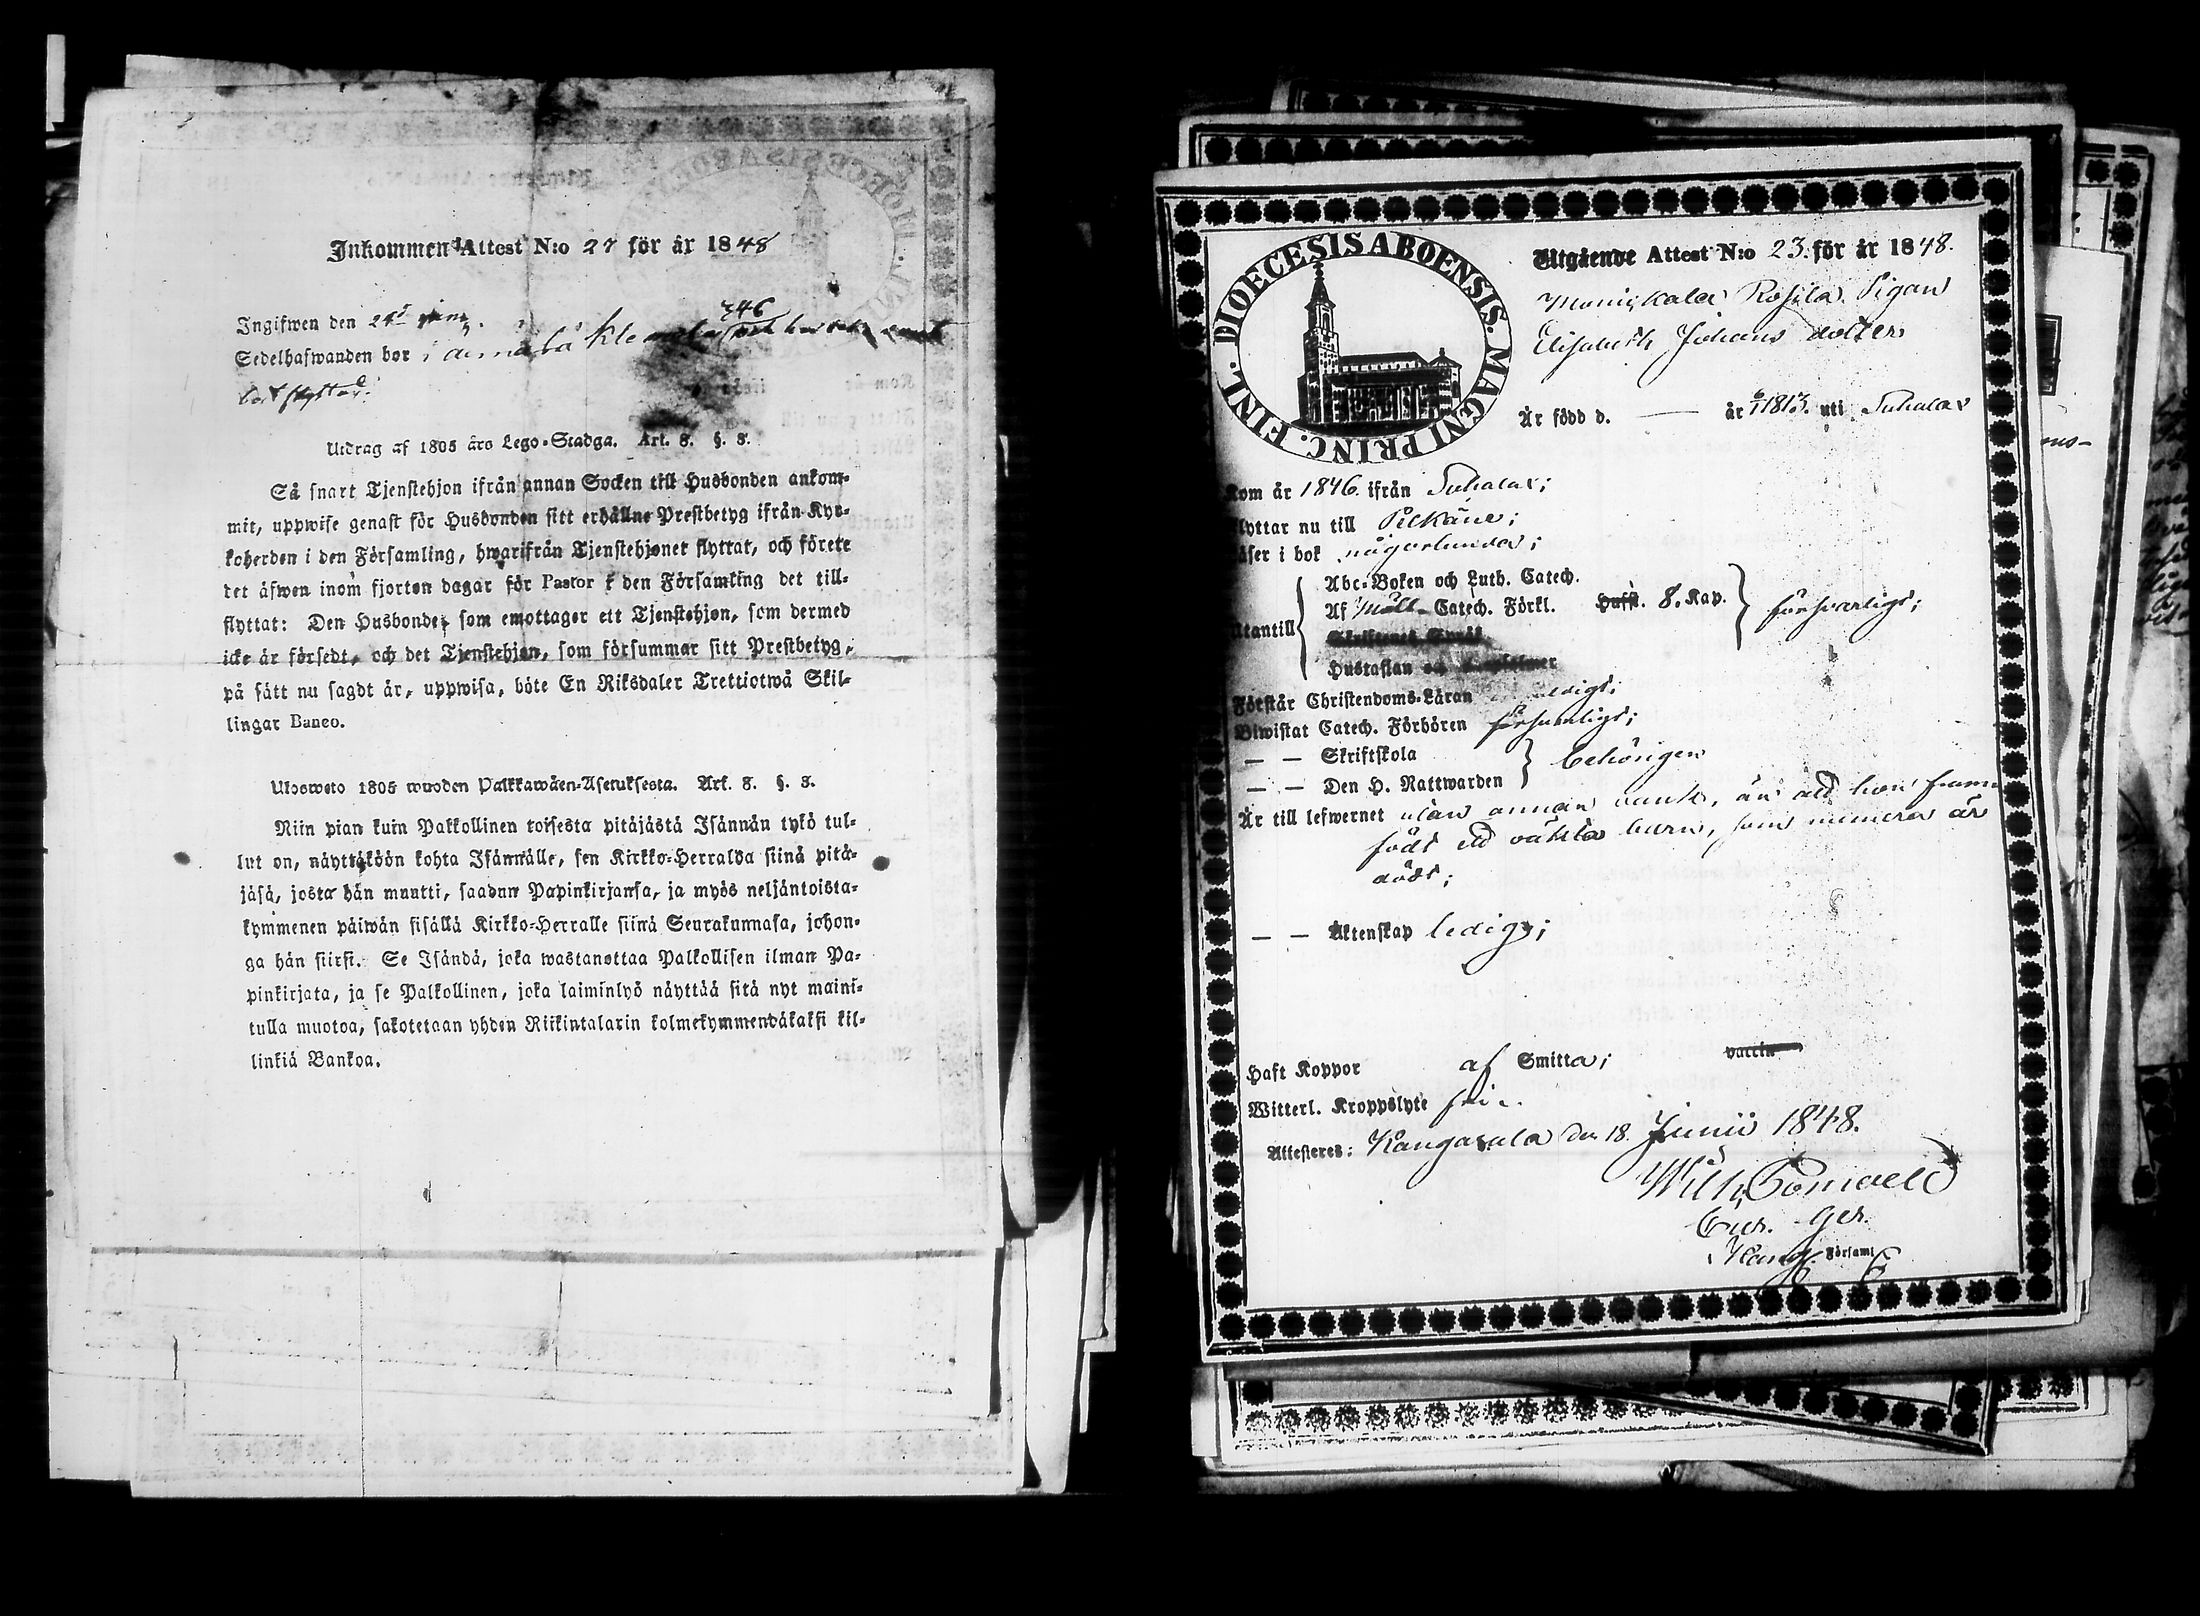 Inkommen Attest N:o 27 för år 1848
Ingifwen den
Sedelhafwanden bor i
346
bortflyttad.
Utdrag af 1805 års Lego-Stadga. Art. 8. §. 8.
Så snart Tjenstehjon ifrån annan Socken till Husbonden ankom-
mit, uppwise genast för Husbonden sitt erhållne Prestbetyg ifrån Kyr-
koherden i den Församling, hwarifrån Tjenstehjonet flyttat, och förete
det äfwen inom fjorton dagar för Pastor i den Församling det till-
flyttat: Den Husbonde, som emottager ett Tjenstehjon, som dermed
icke är försedt, och det Tjenstehjon, som försummar sitt Prestbetyg,
på sätt nu sagdt är, uppwisa, böte En Riksdaler Trettiotwå Skil-
lingar Banco.
Ulosweto 1805 wuoden Palkkawäen-Asetuksesta. Art. 8. §. 8.
Niin pian kuin Palkollinen toisesta pitäjästä Isännän tykö tul-
lut on, näyttäköön kohta Isännälle, sen Kirkko-Herralda siinä pitä-
jäsä, josta hän muutti, saadun Papinkirjansa, ja myös neljäntoista-
kymmenen päiwän sisällä Kirkko-Herralle siinä Seurakunnasa, johon-
ga hän siirsi. Se Isändä, joka wastanottaa Palkollisen ilman Pa-
pinkirjata, ja se Palkollinen, joka laiminlyö näyttää sitä nyt maini-
tulla muotoa, sakotetaan yhden Riikintalarin kolmekymmendäkaksi kil-
linkiä Bankoa.
FINL. DIOECESIS ABOENSIS. MAGNI PRINC.
Utgående Attest N:o 23. för år 1848.
Rossila Pigan
Elisabeth Johans dotter
Är född d. — år 1813. uti Suhalax
Kom år 1846. ifrån Suhalax;
Flyttar nu till Pelkäne;
Läser i bok någorlunda;
Abc-Boken och Luth. Catech.
Af Möll. Catech. Förkl. Hufst. 8. Kap.
Utantill försvarligt;
Skriftenes Språk
Hustaflan och
Förstår Christendoms-Läran
Biwistat Catech. Förhören försumligt;
— — Skriftskola
behörigen
— — Den H. Nattwarden
Är till lefwernet utan annan vank, än att hon fram-
födt ett oäkta barn, som numera är
dödt;
— — Äktenskap ledig;
Haft Koppor af Smitta; vaccin
Witterl. Kroppslyte fri.
Attesteres: Kangasala den 18. Junii 1848.
Församl